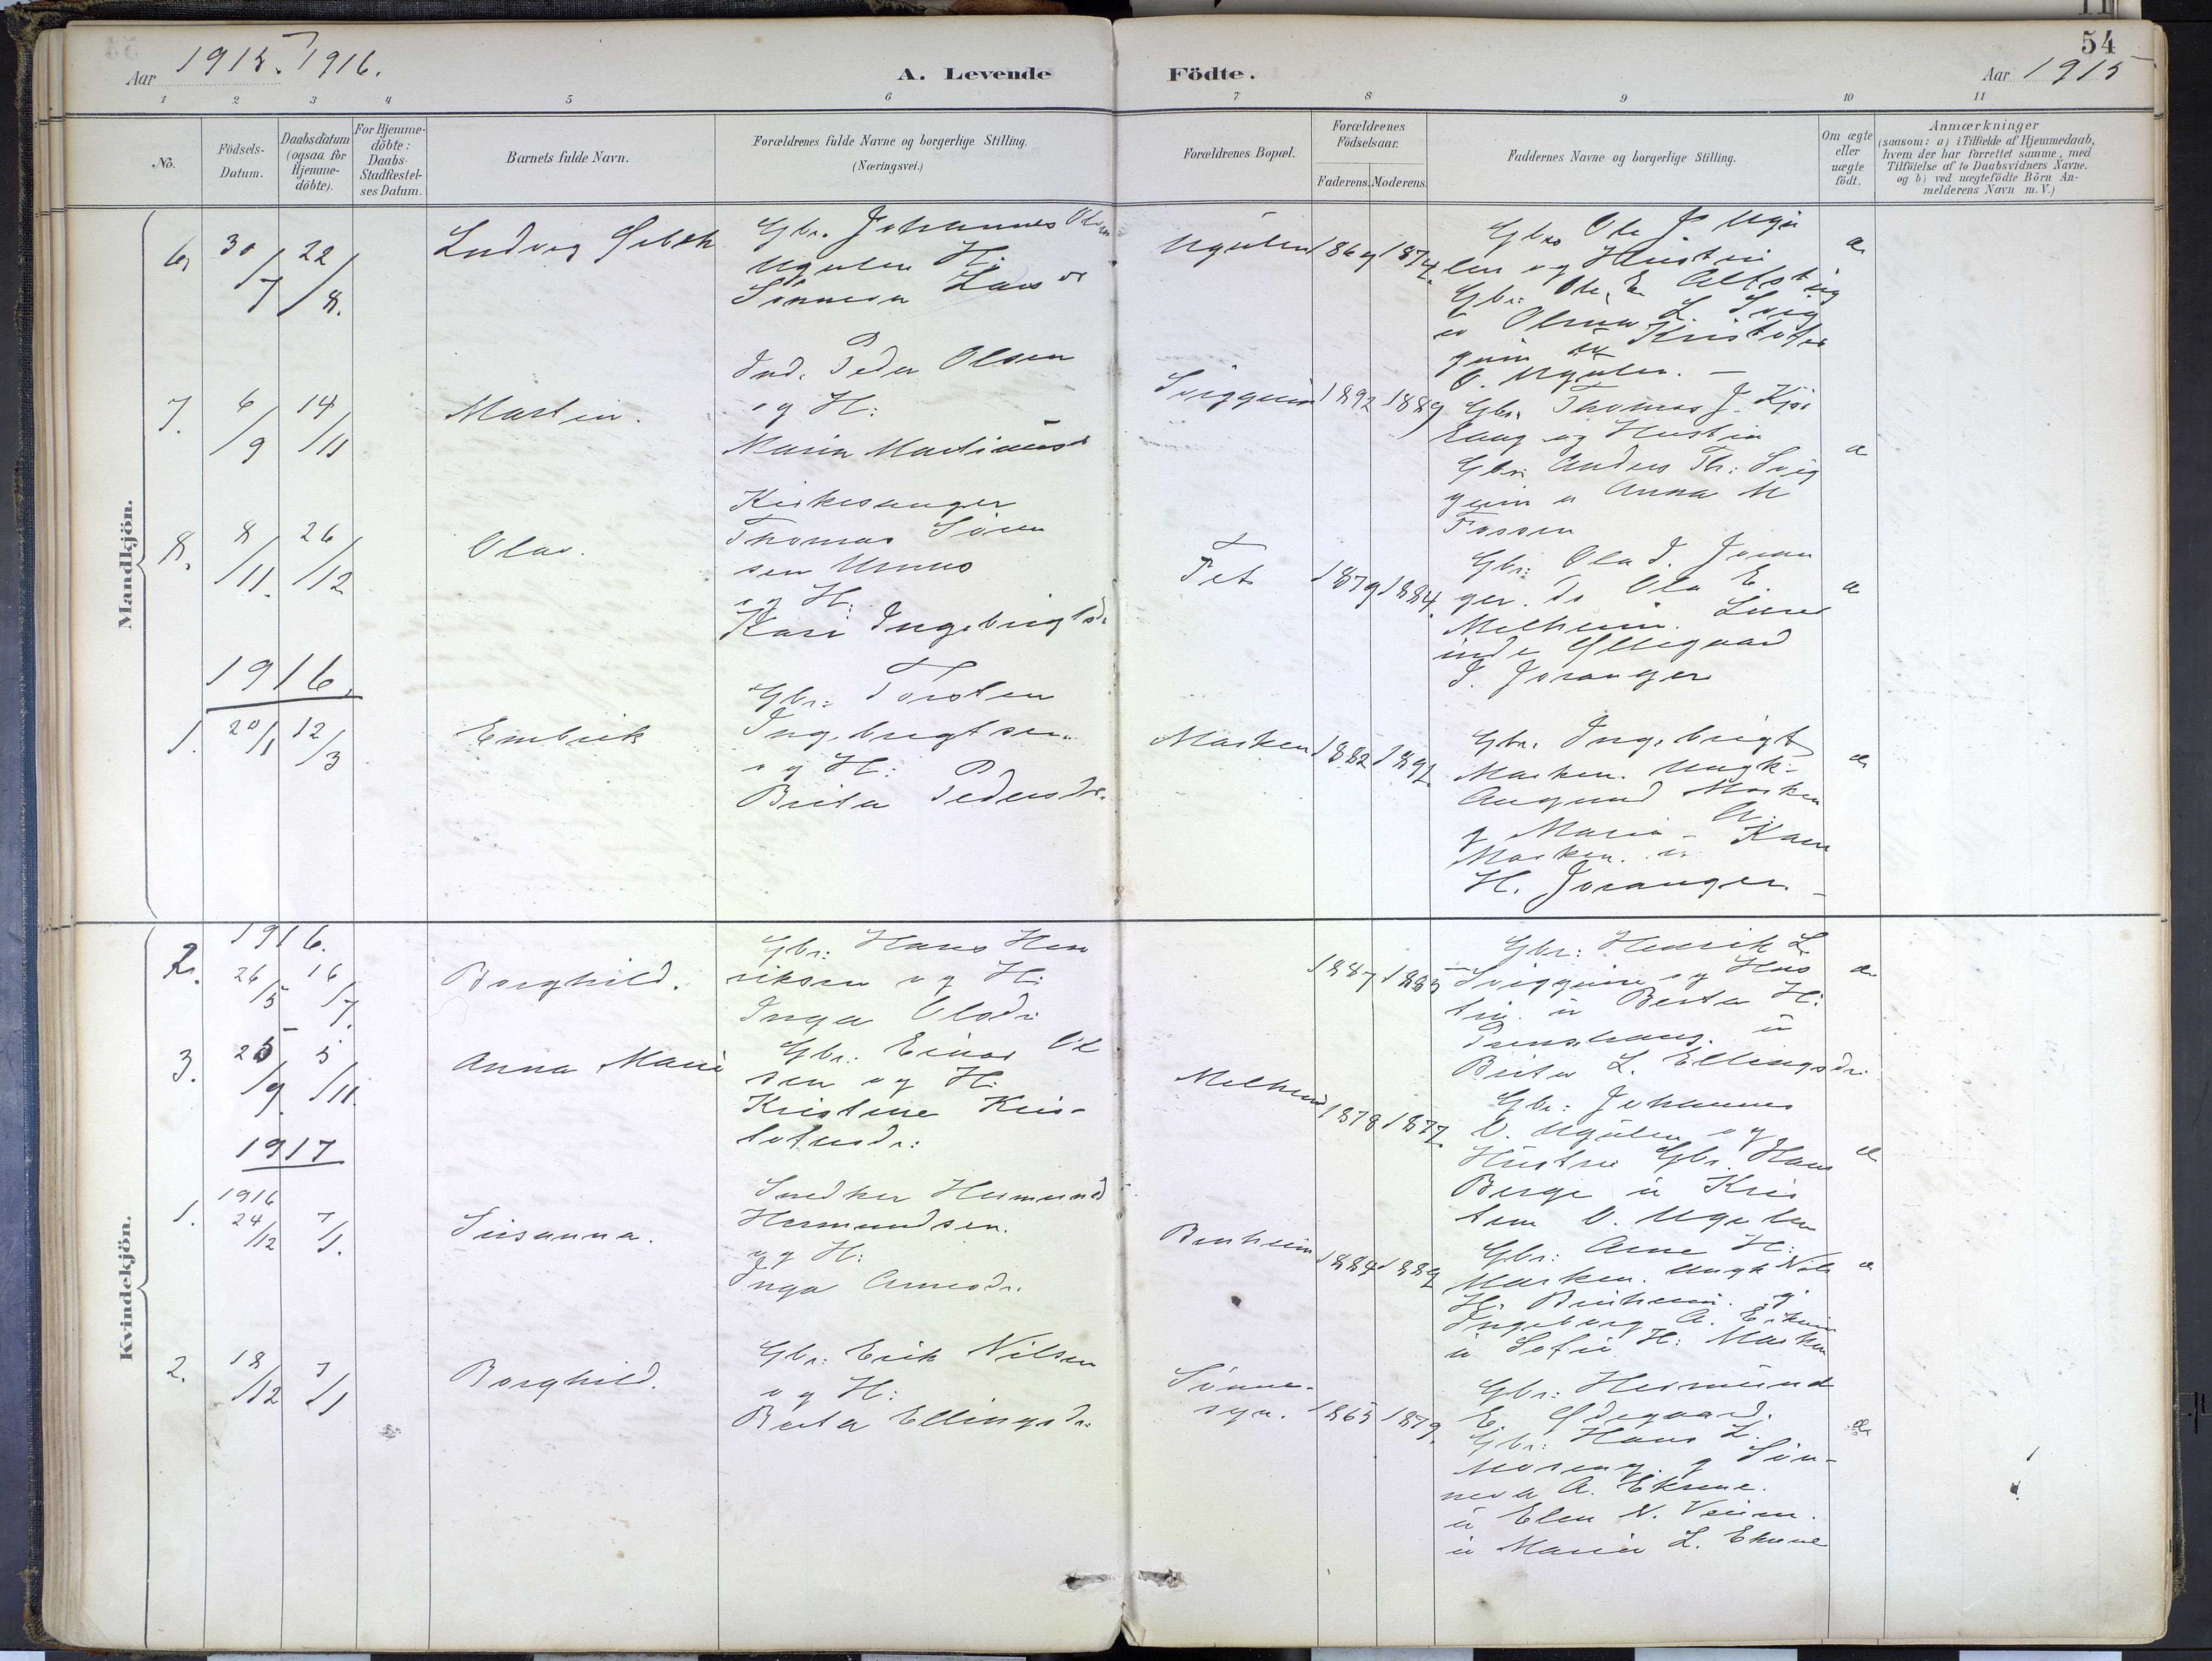 54
Aar 1915. 1916.
A. Levende Födte.
Aar 1915
1 2 3 4 5 6 7 8 9 10 11
No.
Födsels-Datum.
Daabsdatum (ogsaa for Hjemme-döbte).
For Hjemme-döbte: Daabs-Stadfæstel-ses Datum.
Barnets fulde Navn.
Forældrenes fulde Navne og borgerlige Stilling.
(Næringsvei.)
Forældrenes Bopæl.
Forældrenes Födselsaar.
Faderens. Moderens.
Faddernes Navne og borgerlige Stilling.
Om ægte eller uægte födt.
Anmærkninger
(saasom: a) i Tilfælde af Hjemmedaab,
hvem der har forrettet samme, med
Tilföielse af to Daabsvidners Navne.
og b) ved uægtefödte Börn An-
melderens Navn m. V.)
Mandkjön.
6. 30/7 22/8.
Ludvig
Gbr. Johannes Olsen
Ugulen H:
Sönneva Larsdr
Ugulen 1869 1874.
Gbr. Ole J Ugu
len og Hustru
Gbr: Ole E.
Olina L. Svig
gum Kristofer
O. Ugulen. –
æ
7. 6/9 14/11
Martin.
Ind. Peder Olsen
og H:
Maria Martinusd
Sviggum 1892 1889
Gbr. Thomas J. Kjø
og Hustru
Gbr: Anders Th: Svig
gum u Anna M
Fossen
æ
8. 8/11. 26/12
Olav.
Kirkesanger
Thomas Sören
sen Urnes
og H:
Kari Ingebrigtsd.
Fet 1879 1884.
Gbr: Ola J. Joran
ger. do Ola E.
Melheim. Lærer
inde Øllegaard
J. Joranger
æ
1916
1. 20/1 12/3
Embrik
Gbr: Torsten
Ingebrigtsen.
og H:
Brita Pedersdr.
Marken 1882 1892.
Gbr. Ingebrigt
Marken. Ungk.
Augund Marken
g Maria A. Kari
Marken. u
H. Joranger. –
æ
Kvindekjön.
1916.
2. 26/5 16/7.
Borghild.
Gbr: Hans Hen
riksen og H:
Inga Olsdr.
1887 1885
Gbr: Henrik L
Sviggum og Hus
tru. u Berta H:
u
Brita L. Ellingsdr.
æ
3. 25/9. 5/11.
Anna Marie
Gbr. Einar Ol
sen og H:
Kristine Kris-
tofersdr:
Melheim 1878 1877.
Gbr: Johannes
O. Ugulen og
Hustru Gbr. Hans
Berge u Kris
O. Ugulen
æ
1917
1916
1. 24/12 7/1.
Susanna.
Snedker Hermund
Hermundsen.
og H:
Inga Arnesdr.
1884 1889
Gbr: Arne H:
Marken. Ungk Nils
H. g
Ingeborg A.
u Sofie H: Marken
æ
2. 18/12 7/1
Borghild.
Gbr: Erik Nilsen
og H:
Berta Ellingsdr.
1865 1879.
Gbr: Hermund
E. Ødegaard.
Gbr: Hans L.
g Sön-
neva A. Ekrene.
u Elen N. Veum.
u Maria L. Ekrene
æ